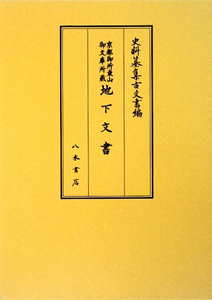 史料纂集古文書編
京都御所東山
御文庫所蔵
地下文書
八木書店